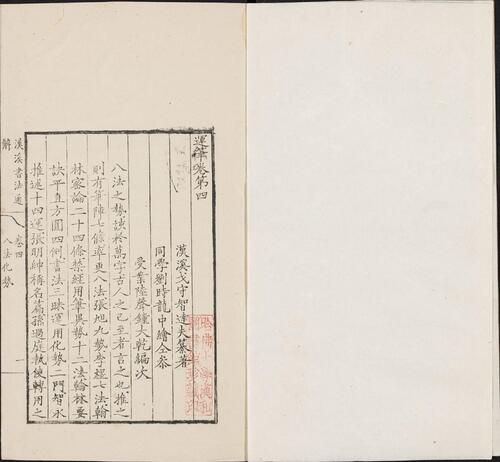 運筆卷第四
漢溪戈守智達夫纂著
同學劉時龍中繪仝叅
受業陸聲鐘大乾編次
八法之勢該於萬字古人之已至者言之也推之
則有筆陣七條率更八法張旭九勢李煜七法翰
林密論二十四條禁經用筆異勢十二法翰林要
訣平直方圓四例書法三昧運用化勢二門智永
推述十四運張明紳稱名篇孫過庭執使轉用之
漢溪書法通解
卷四
八法化勢
一